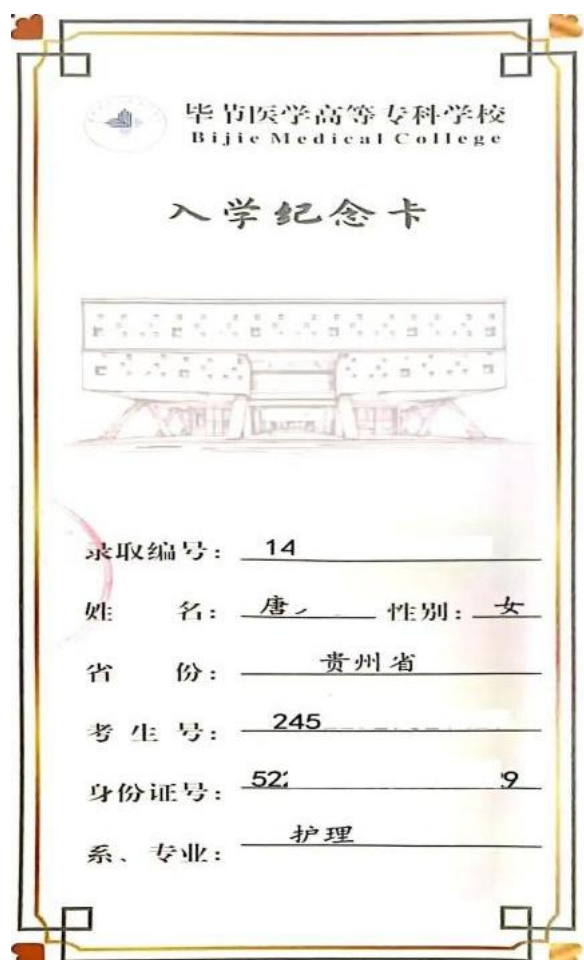 毕节医学高等专科学校
Bijie Medical College
入学纪念卡
录取编号： 14
姓 名： 唐 性别： 女
省 份： 贵州省
考 生 号： 245
身份证号： 522 9
系、专业： 护理